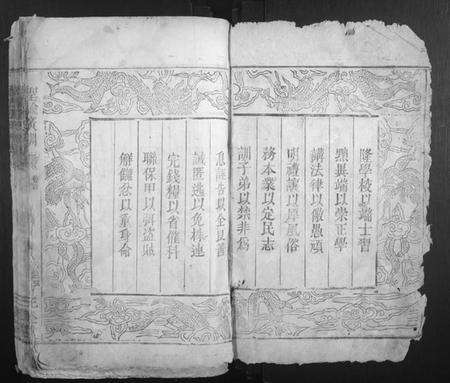 隆學校以端士習
黜異端以崇正學
講法律以儆愚頑
明禮讓以厚風俗
務本業以定民志
訓子弟以禁非為
息誣告以全以善
誡匿逃以免株連
完錢糧以省催科
聯保甲以弭盜賊
解讐忿以重身命